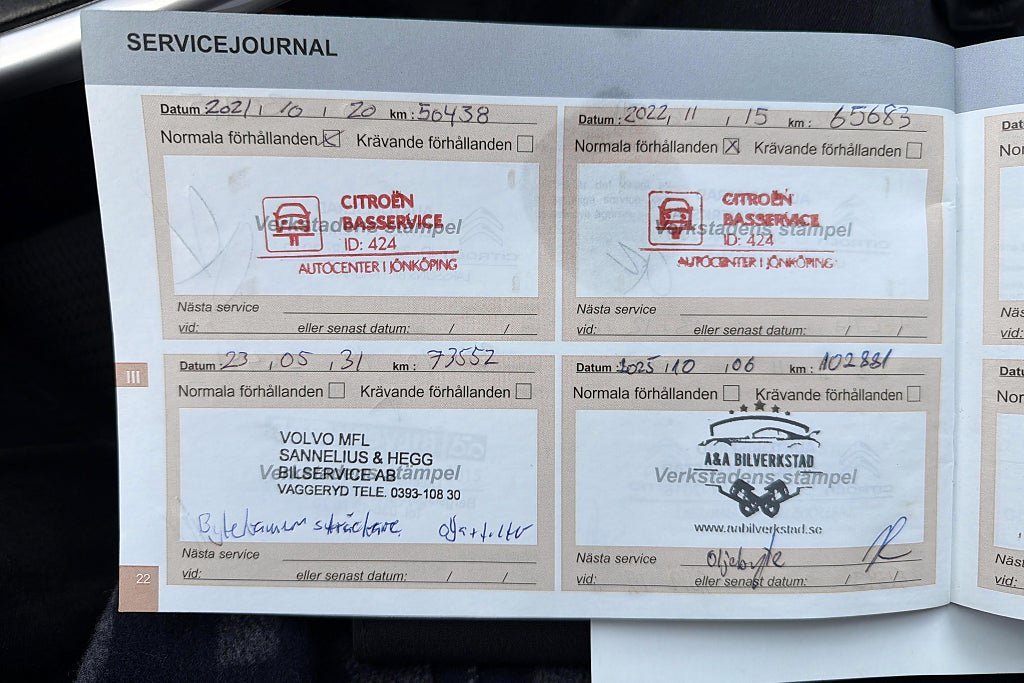 SERVICEJOURNAL
Datum : 2021, 10, 20 km : 50438
Normala förhållanden Krävande förhållanden
CITROËN
BASSERVICE
Verkstadens stämpel
ID: 424
AUTOCENTER I JÖNKÖPING
Nästa service
vid: eller senast datum: / /
Datum : 2022, 11, 15 km : 65683
Normala förhållanden Krävande förhållanden
CITROËN
BASSERVICE
Verkstadens stämpel
ID: 424
AUTOCENTER I JÖNKÖPING
Nästa service
vid: eller senast datum: / /
III
Datum : 23, 05, 31 km : 73552
Normala förhållanden Krävande förhållanden
VOLVO MFL
SANNELIUS & HEGG
BILSERVICE AB
Verkstadens stämpel
VAGGERYD TELE. 0393-108 30
Nästa service
vid: eller senast datum: / /
Datum : 2025, 10, 06 km : 102881
Normala förhållanden Krävande förhållanden
A&A BILVERKSTAD
Verkstadens stämpel
Nästa service Oljebyte
vid: eller senast datum: / /
22